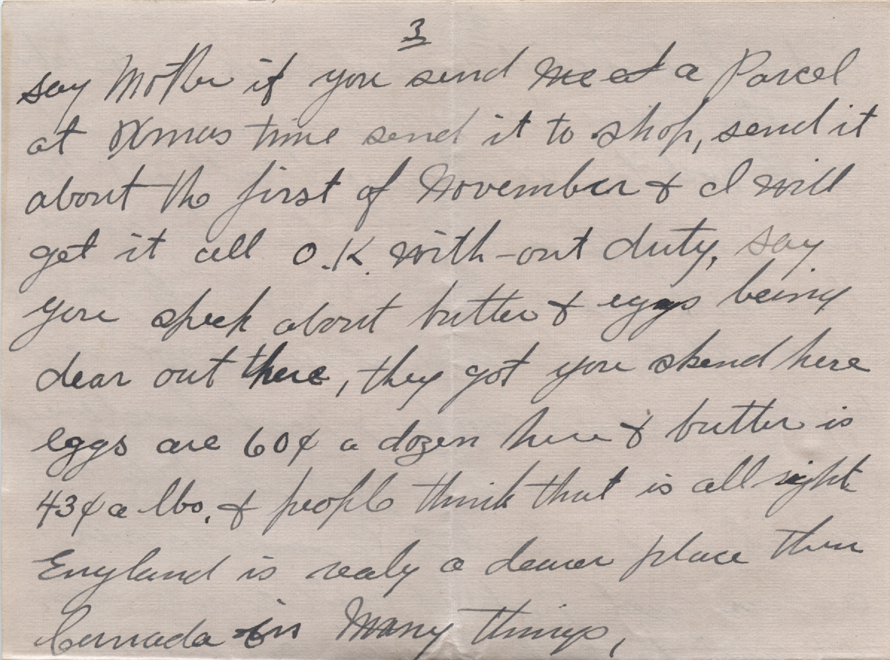 3
say Mother if you send me a Parcel
at Xmas time send it to shop, send it
about the first of November & I will
get it all O.K. with-out duty, say
you speek about butter & eggs being
dear out there, they got you skend here
eggs are 60¢ a dozen here & butter is
43¢ a lbs. & people think that is all right
England is realy a dearer place then
Canada in Many things,